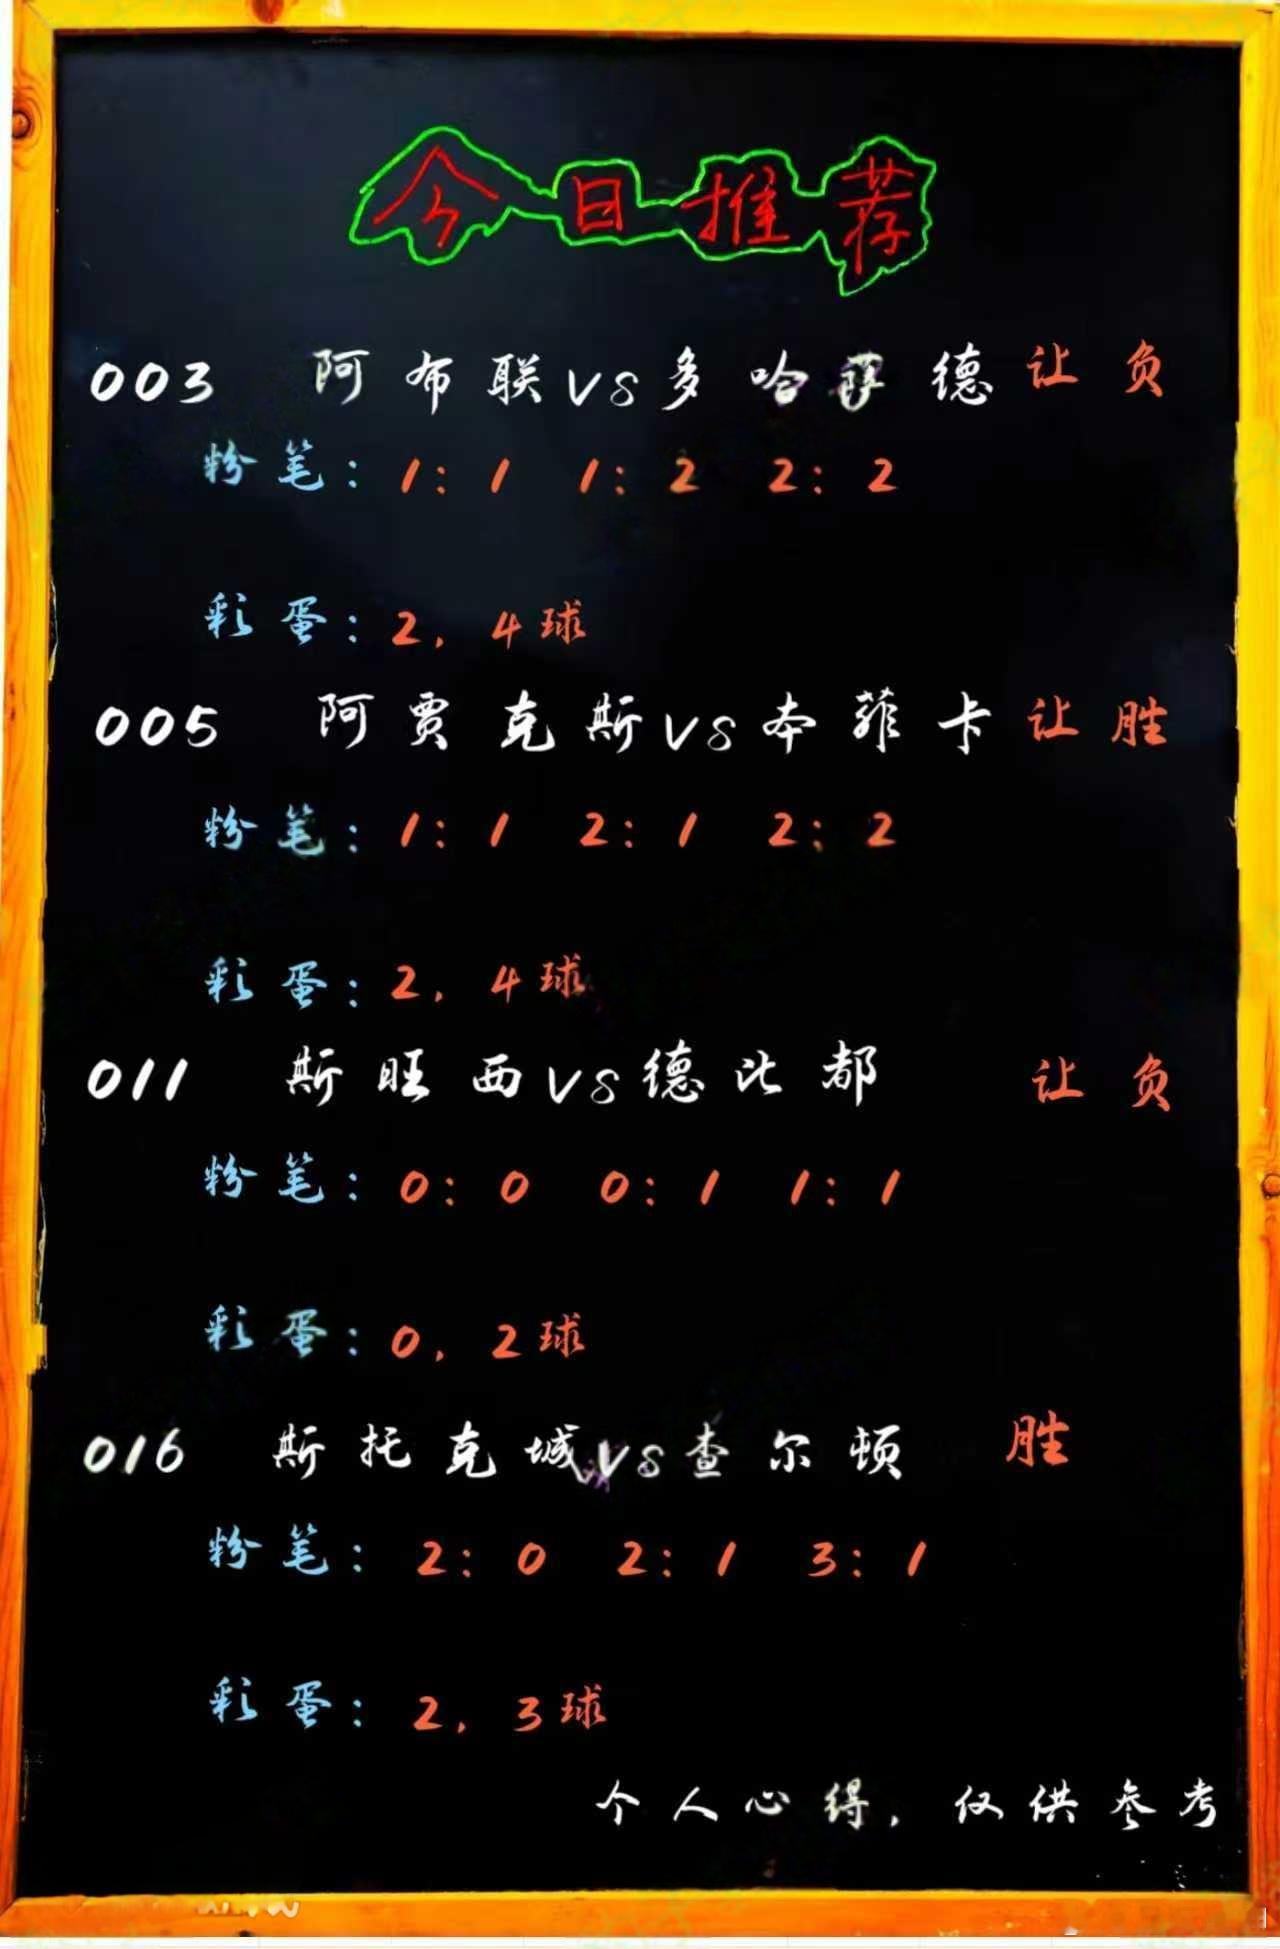 今日推荐
003 阿布联VS多哈萨德 让负
粉笔：1:1 1:2 2:2
彩蛋：2，4球
005 阿贾克斯VS本菲卡 让胜
粉笔：1:1 2:1 2:2
彩蛋：2，4球
011 斯旺西VS德比郡
让负
粉笔：0:0 0:1 1:1
彩蛋：0，2球
016 斯托克城VS查尔顿 胜
粉笔：2:0 2:1 3:1
彩蛋：2，3球
个人心得，仅供参考